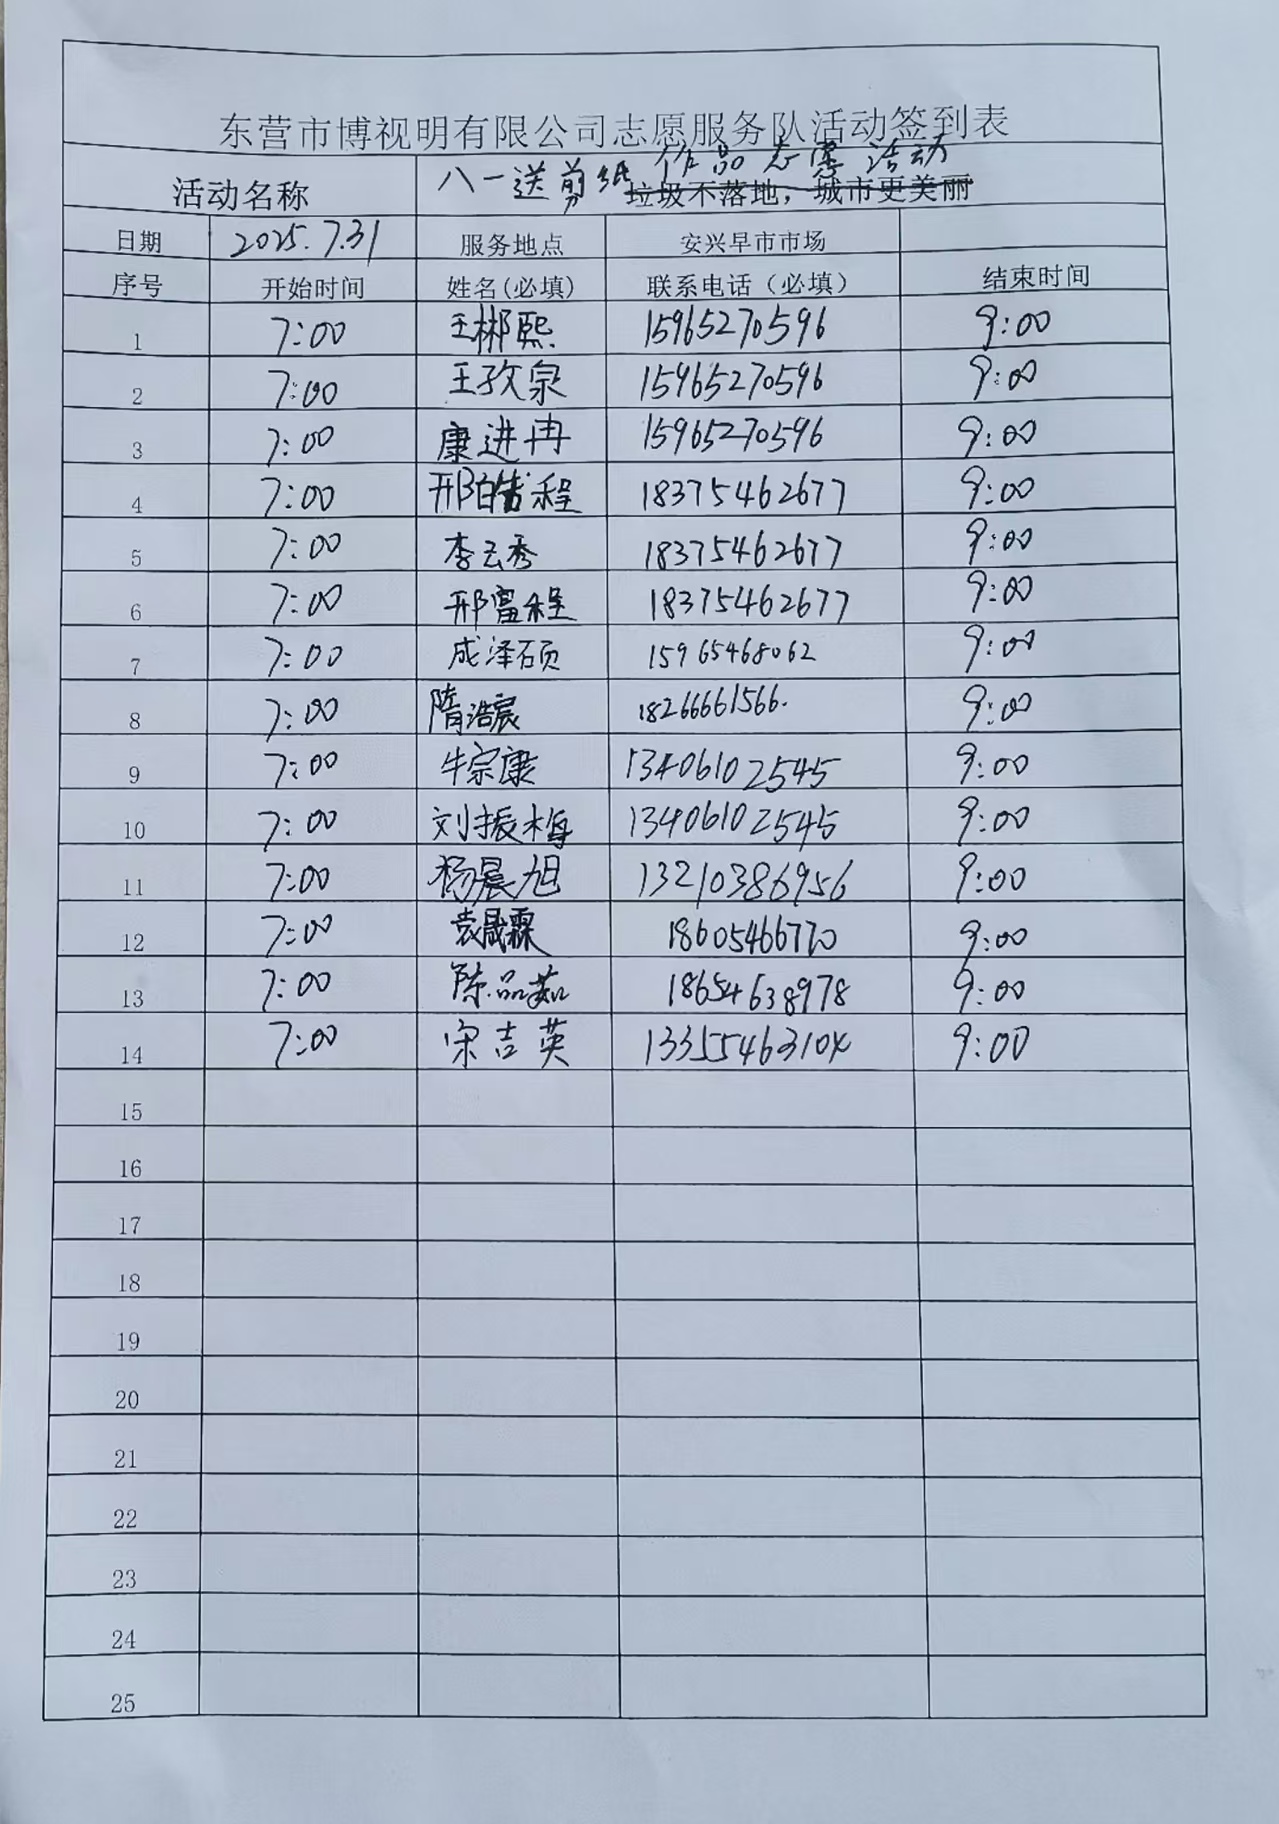 东营市博视明有限公司志愿服务队活动签到表
活动名称 八一送剪纸作品志愿活动
垃圾不落地，城市更美丽
日期 2025.7.31 服务地点 安兴早市市场
序号 开始时间 姓名(必填) 联系电话（必填） 结束时间
1 7:00 王郴熙 15965270596 9:00
2 7:00 王孜泉 15965270596 9:00
3 7:00 康进冉 15965270596 9:00
4 7:00 邢皓程 18375462677 9:00
5 7:00 李云秀 18375462677 9:00
6 7:00 邢富程 18375462677 9:00
7 7:00 成泽硕 15965468062 9:00
8 7:00 隋浩宸 18266661566. 9:00
9 7:00 牛宗康 13406102545 9:00
10 7:00 刘振梅 13406102545 9:00
11 7:00 杨晨旭 13210386956 9:00
12 7:00 袁晟霖 18605466770 9:00
13 7:00 陈品茹 18654638978 9:00
14 7:00 宋吉英 9:00
15
16
17
18
19
20
21
22
23
24
25